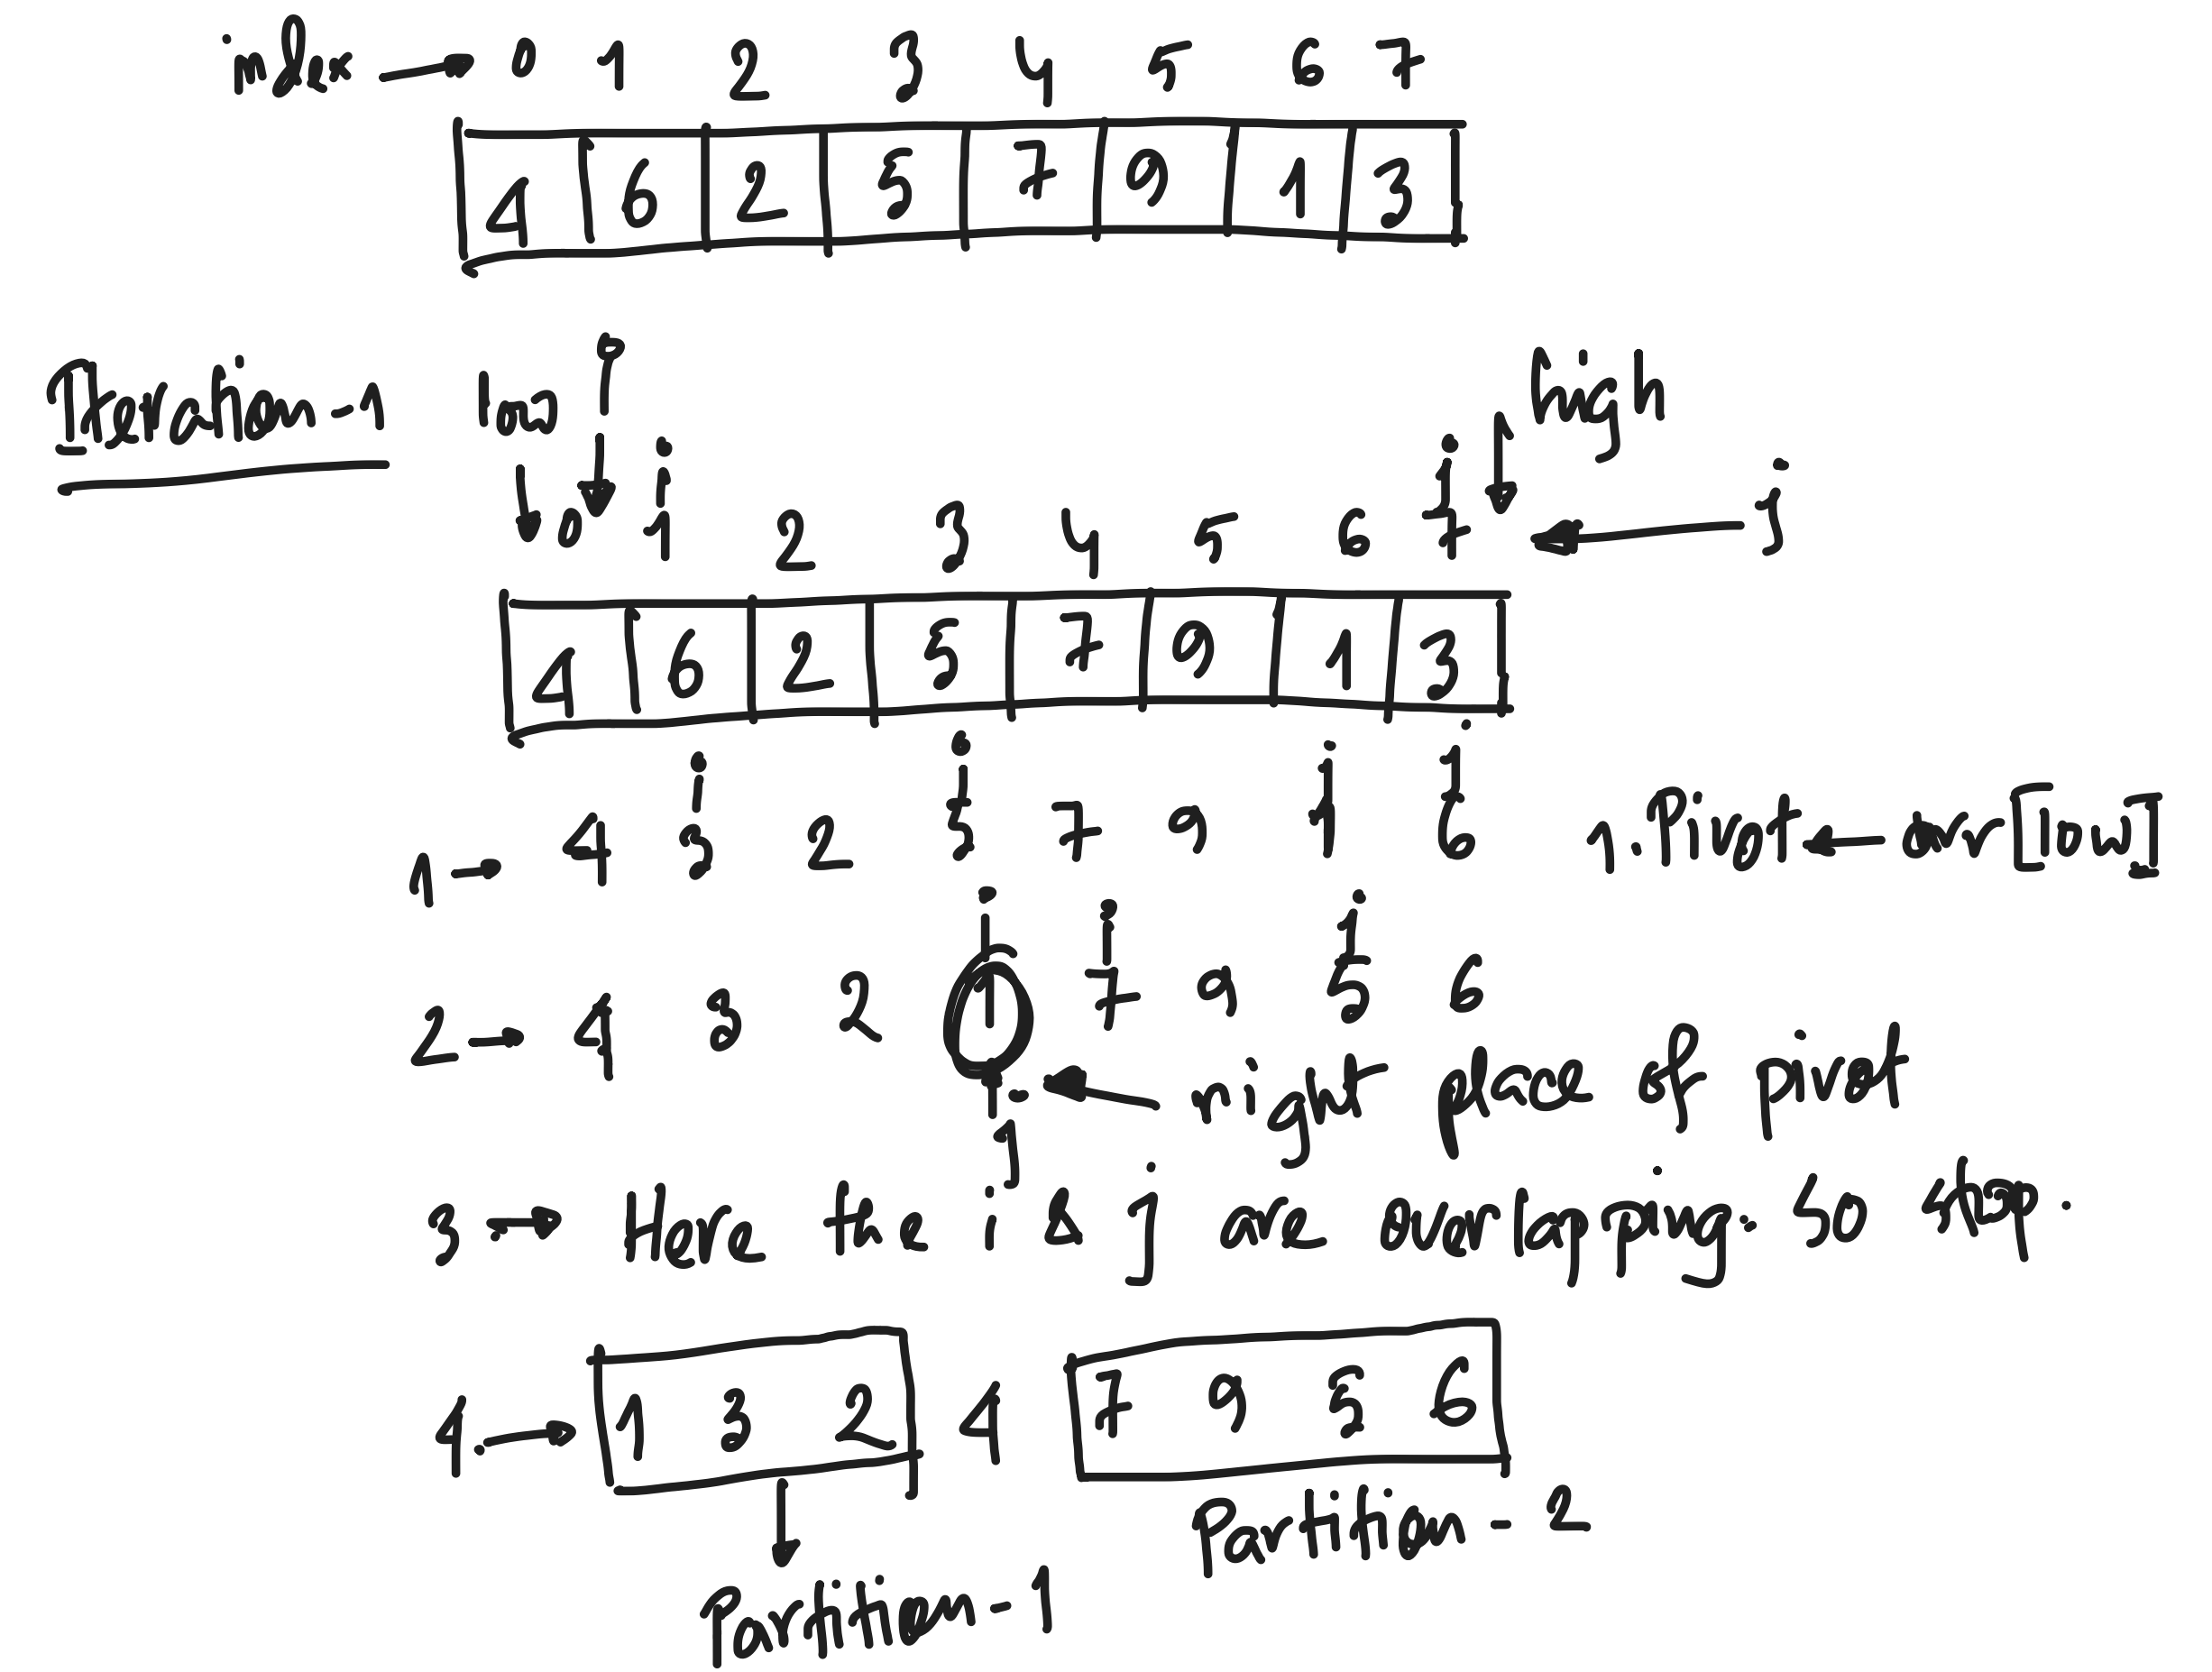 index → 0 1 2 3 4 5 6 7
4 6 2 5 7 9 1 3
Iteration-1 low P high
i j j
0 1 2 3 4 5 6 7
4 6 2 5 7 9 1 3
i i j j
1→ 4 3 2 5 7 9 1 6 1. Pivot ← arr[low]
i i j
2→ 4 3 2 1 7 9 5 6
j ← right place of pivot
3→ Here the i & j are overlapping. So stop.
4.→ 1 3 2 4 7 9 5 6
Partition-2
Partition-1